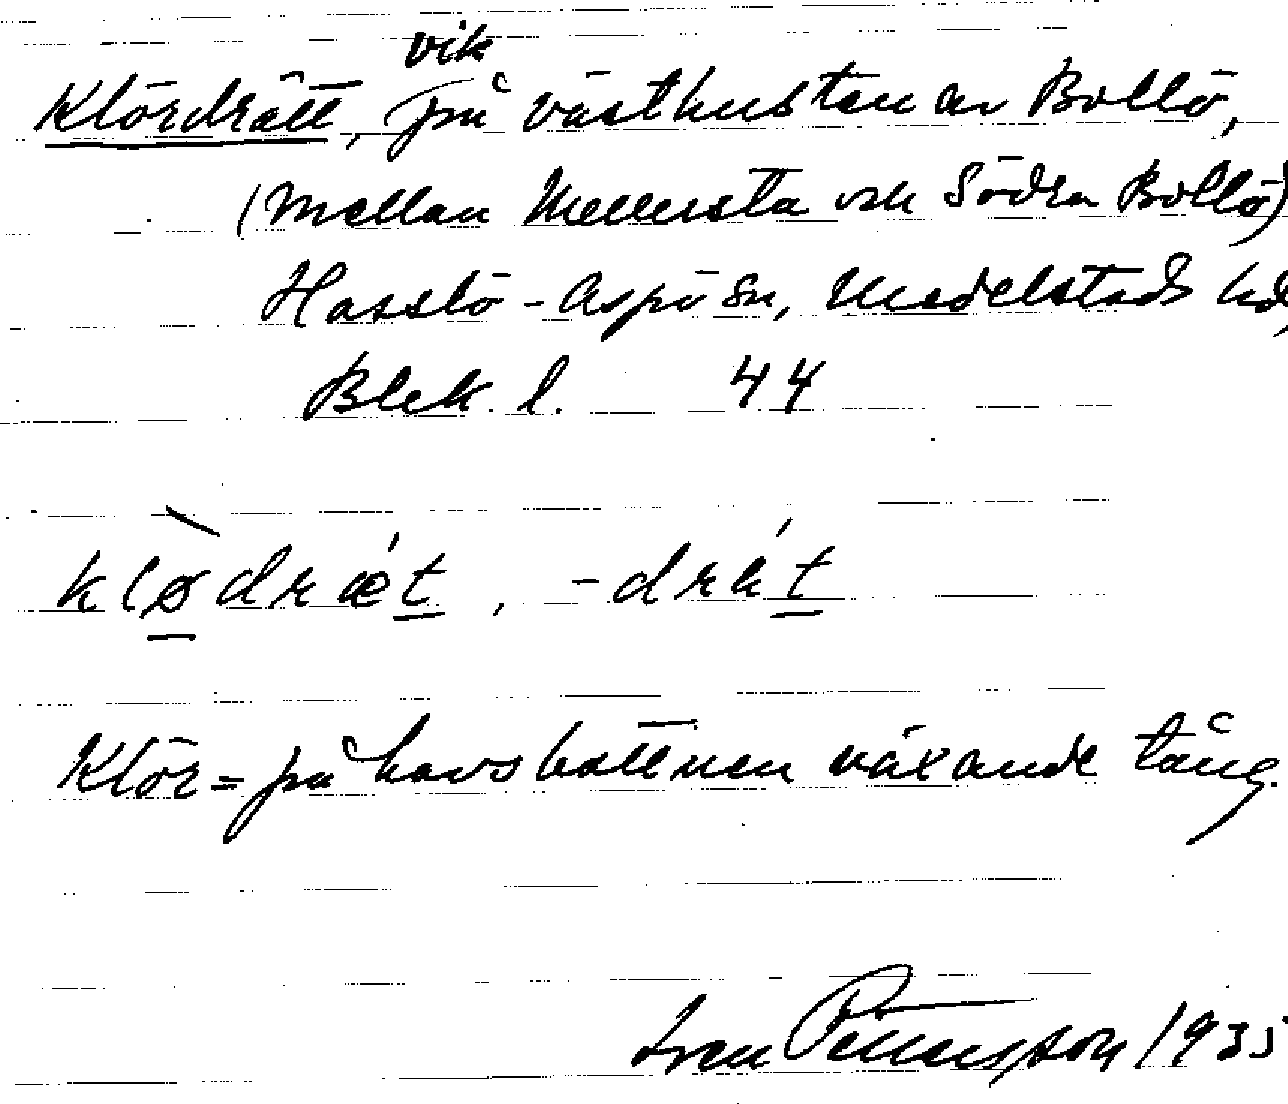 vik
Klördrätt, på västkusten av Bollö,
(mellan Mellersta och Södra Bollö)
Hasslö-Aspö sn, Medelstads hd,
Blek. l. 44
klø̀drǽt, -drát
Klör = på havsbottnen växande tång.
Sven Pettersson 1935